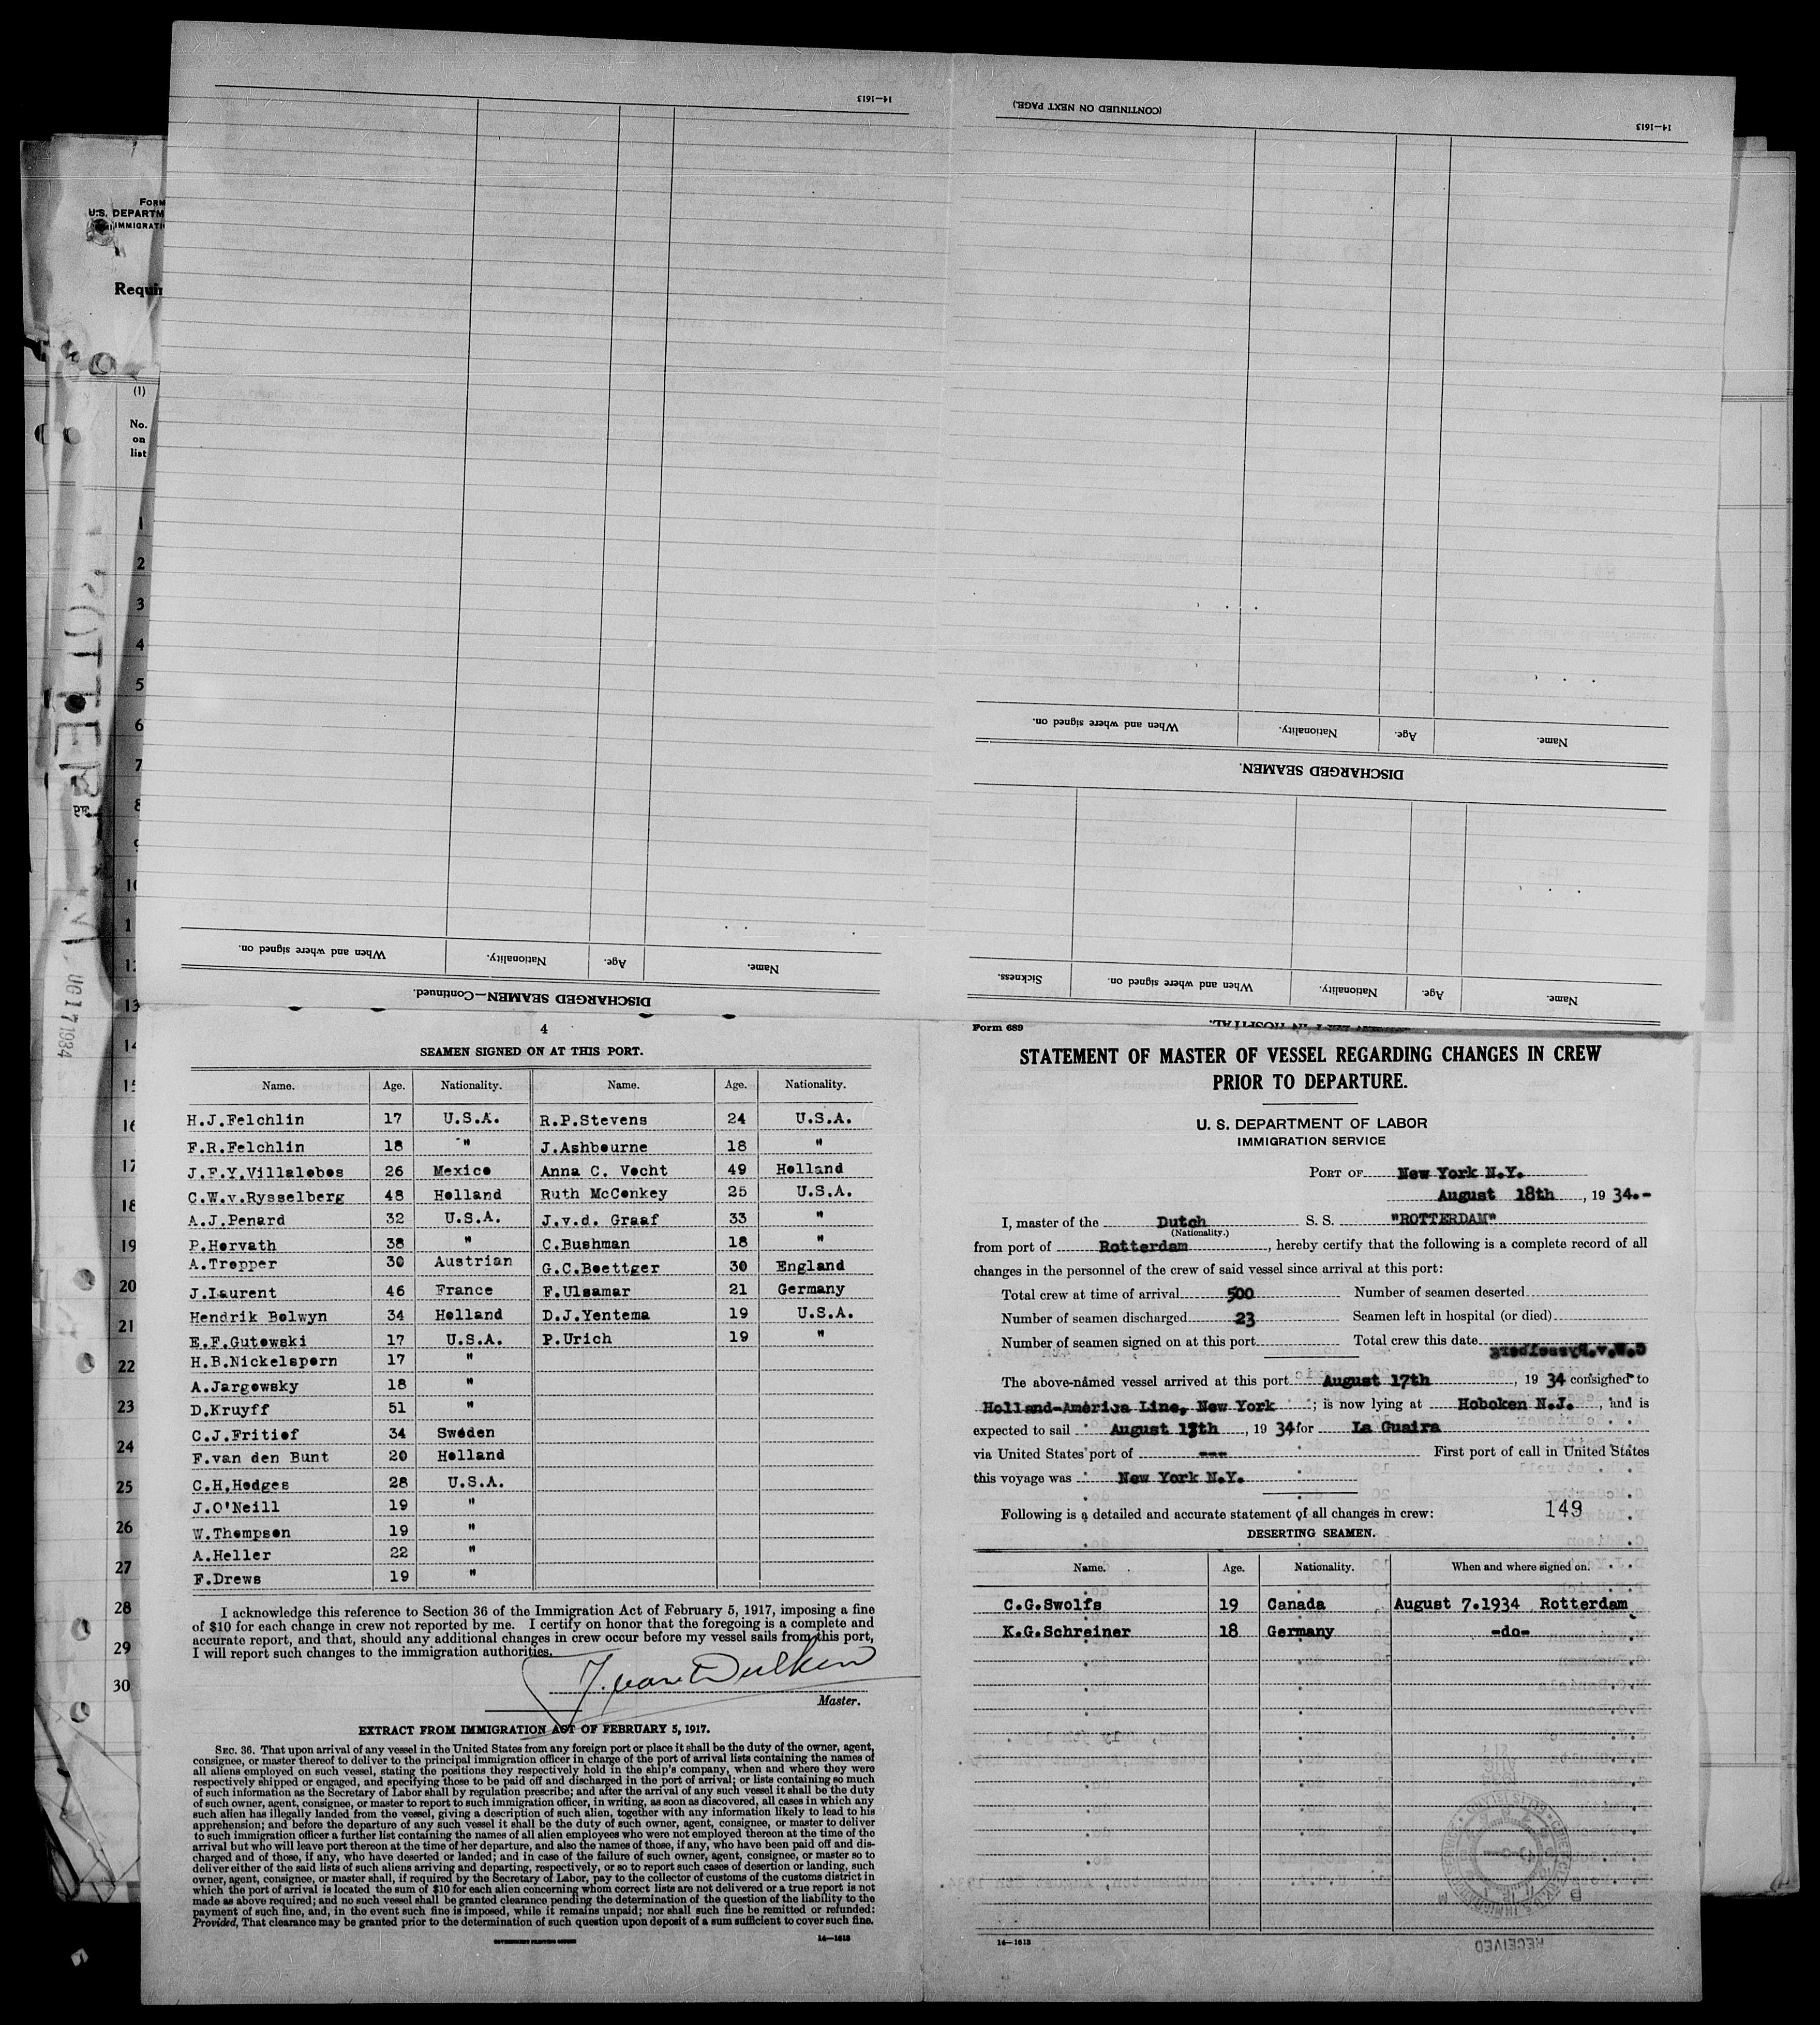 14—1613
(CONTINUED ON NEXT PAGE.)
14—1613
When and where signed on.
Nationality.
Age.
Name.
DISCHARGED SEAMEN.
When and where signed on.
Nationality.
Age.
Name.
DISCHARGED SEAMEN—Continued.
Sickness.
When and where signed on.
Nationality.
Age.
Name.
FORM
U.S. DEPARTM
IMMIGRATI
Requir
(1)
No.
on
list
1
2
3
4
5
6
7
8
9
10
1
12
13
14
15
16
17
18
19
20
21
22
23
24
25
26
27
28
29
30
UG 17 1934
4
SEAMEN SIGNED ON AT THIS PORT.
Name. Age. Nationality. Name. Age. Nationality.
H.J.Felchlin 17 U.S.A. R.P.Stevens 24 U.S.A.
F.R.Felchlin 18 " J.Ashbourne 18 "
J.F.Y.Villalobos 26 Mexico Anna C. Vocht 49 Holland
C.W.v.Rysselberg 48 Holland Ruth McConkey 25 U.S.A.
A.J.Penard 32 U.S.A. J.v.d. Graaf 33 "
P.Horvath 38 " C.Bushman 18 "
A.Tropper 30 Austrian G.C.Boettger 30 England
J.Laurent 46 France F.Ulsamar 21 Germany
Hendrik Bolwyn 34 Holland D.J.Yentema 19 U.S.A.
E.F.Gutowski 17 U.S.A. P.Urich 19 "
H.B.Nickelsporn 17 "
A.Jargowsky 18 "
D.Kruyff 51 "
C.J.Fritiof 34 Sweden
F.van den Bunt 20 Holland
C.H.Hodges 28 U.S.A.
J.O'Neill 19 "
W.Thompson 19 "
A.Heller 22 "
F.Drews 19 "
I acknowledge this reference to Section 36 of the Immigration Act of February 5, 1917, imposing a fine
of $10 for each change in crew not reported by me. I certify on honor that the foregoing is a complete and
accurate report, and that, should any additional changes in crew occur before my vessel sails from this port,
I will report such changes to the immigration authorities.
J. van Dulken
Master.
EXTRACT FROM IMMIGRATION ACT OF FEBRUARY 5, 1917.
SEC. 36. That upon arrival of any vessel in the United States from any foreign port or place it shall be the duty of the owner, agent,
consignee, or master thereof to deliver to the principal immigration officer in charge of the port of arrival lists containing the names of
all aliens employed on such vessel, stating the positions they respectively hold in the ship's company, when and where they were
respectively shipped or engaged, and specifying those to be paid off and discharged in the port of arrival; or lists containing so much
of such information as the Secretary of Labor shall by regulation prescribe; and after the arrival of any such vessel it shall be the duty
of such owner, agent, consignee, or master to report to such immigration officer, in writing, as soon as discovered, all cases in which any
such alien has illegally landed from the vessel, giving a description of such alien, together with any information likely to lead to his
apprehension; and before the departure of any such vessel it shall be the duty of such owner, agent, consignee, or master to deliver
to such immigration officer a further list containing the names of all alien employees who were not employed thereon at the time of the
arrival but who will leave port thereon at the time of her departure, and also the names of those, if any, who have been paid off and dis-
charged and of those, if any, who have deserted or landed; and in case of the failure of such owner, agent, consignee, or master so to
deliver either of the said lists of such aliens arriving and departing, respectively, or so to report such cases of desertion or landing, such
owner, agent, consignee, or master shall, if required by the Secretary of Labor, pay to the collector of customs of the customs district in
which the port of arrival is located the sum of $10 for each alien concerning whom correct lists are not delivered or a true report is not
made as above required; and no such vessel shall be granted clearance pending the determination of the question of the liability to the
payment of such fine, and, in the event such fine is imposed, while it remains unpaid; nor shall such fine be remitted or refunded:
Provided, That clearance may be granted prior to the determination of such question upon deposit of a sum sufficient to cover such fine.
GOVERNMENT PRINTING OFFICE 14—1613
Form 689
STATEMENT OF MASTER OF VESSEL REGARDING CHANGES IN CREW
PRIOR TO DEPARTURE.
U. S. DEPARTMENT OF LABOR
IMMIGRATION SERVICE
PORT OF New York N.Y.
August 18th , 19 34.-
I, master of the Dutch S. S. "ROTTERDAM"
(Nationality.)
from port of Rotterdam , hereby certify that the following is a complete record of all
changes in the personnel of the crew of said vessel since arrival at this port:
Total crew at time of arrival 500 Number of seamen deserted
Number of seamen discharged 23 Seamen left in hospital (or died)
Number of seamen signed on at this port Total crew this date
The above-named vessel arrived at this port August 17th , 19 34 consigned to
Holland-America Line, New York ; is now lying at Hoboken N.J. , and is
expected to sail August 1th , 19 34 for La Guaira
via United States port of --- First port of call in United States
this voyage was New York N.Y.
Following is a detailed and accurate statement of all changes in crew: 149
DESERTING SEAMEN.
Name. Age. Nationality. When and where signed on.
C.G.Swolfs 19 Canada August 7.1934 Rotterdam
K.G.Schreiner 18 Germany -do-
14—1613
RECEIVED